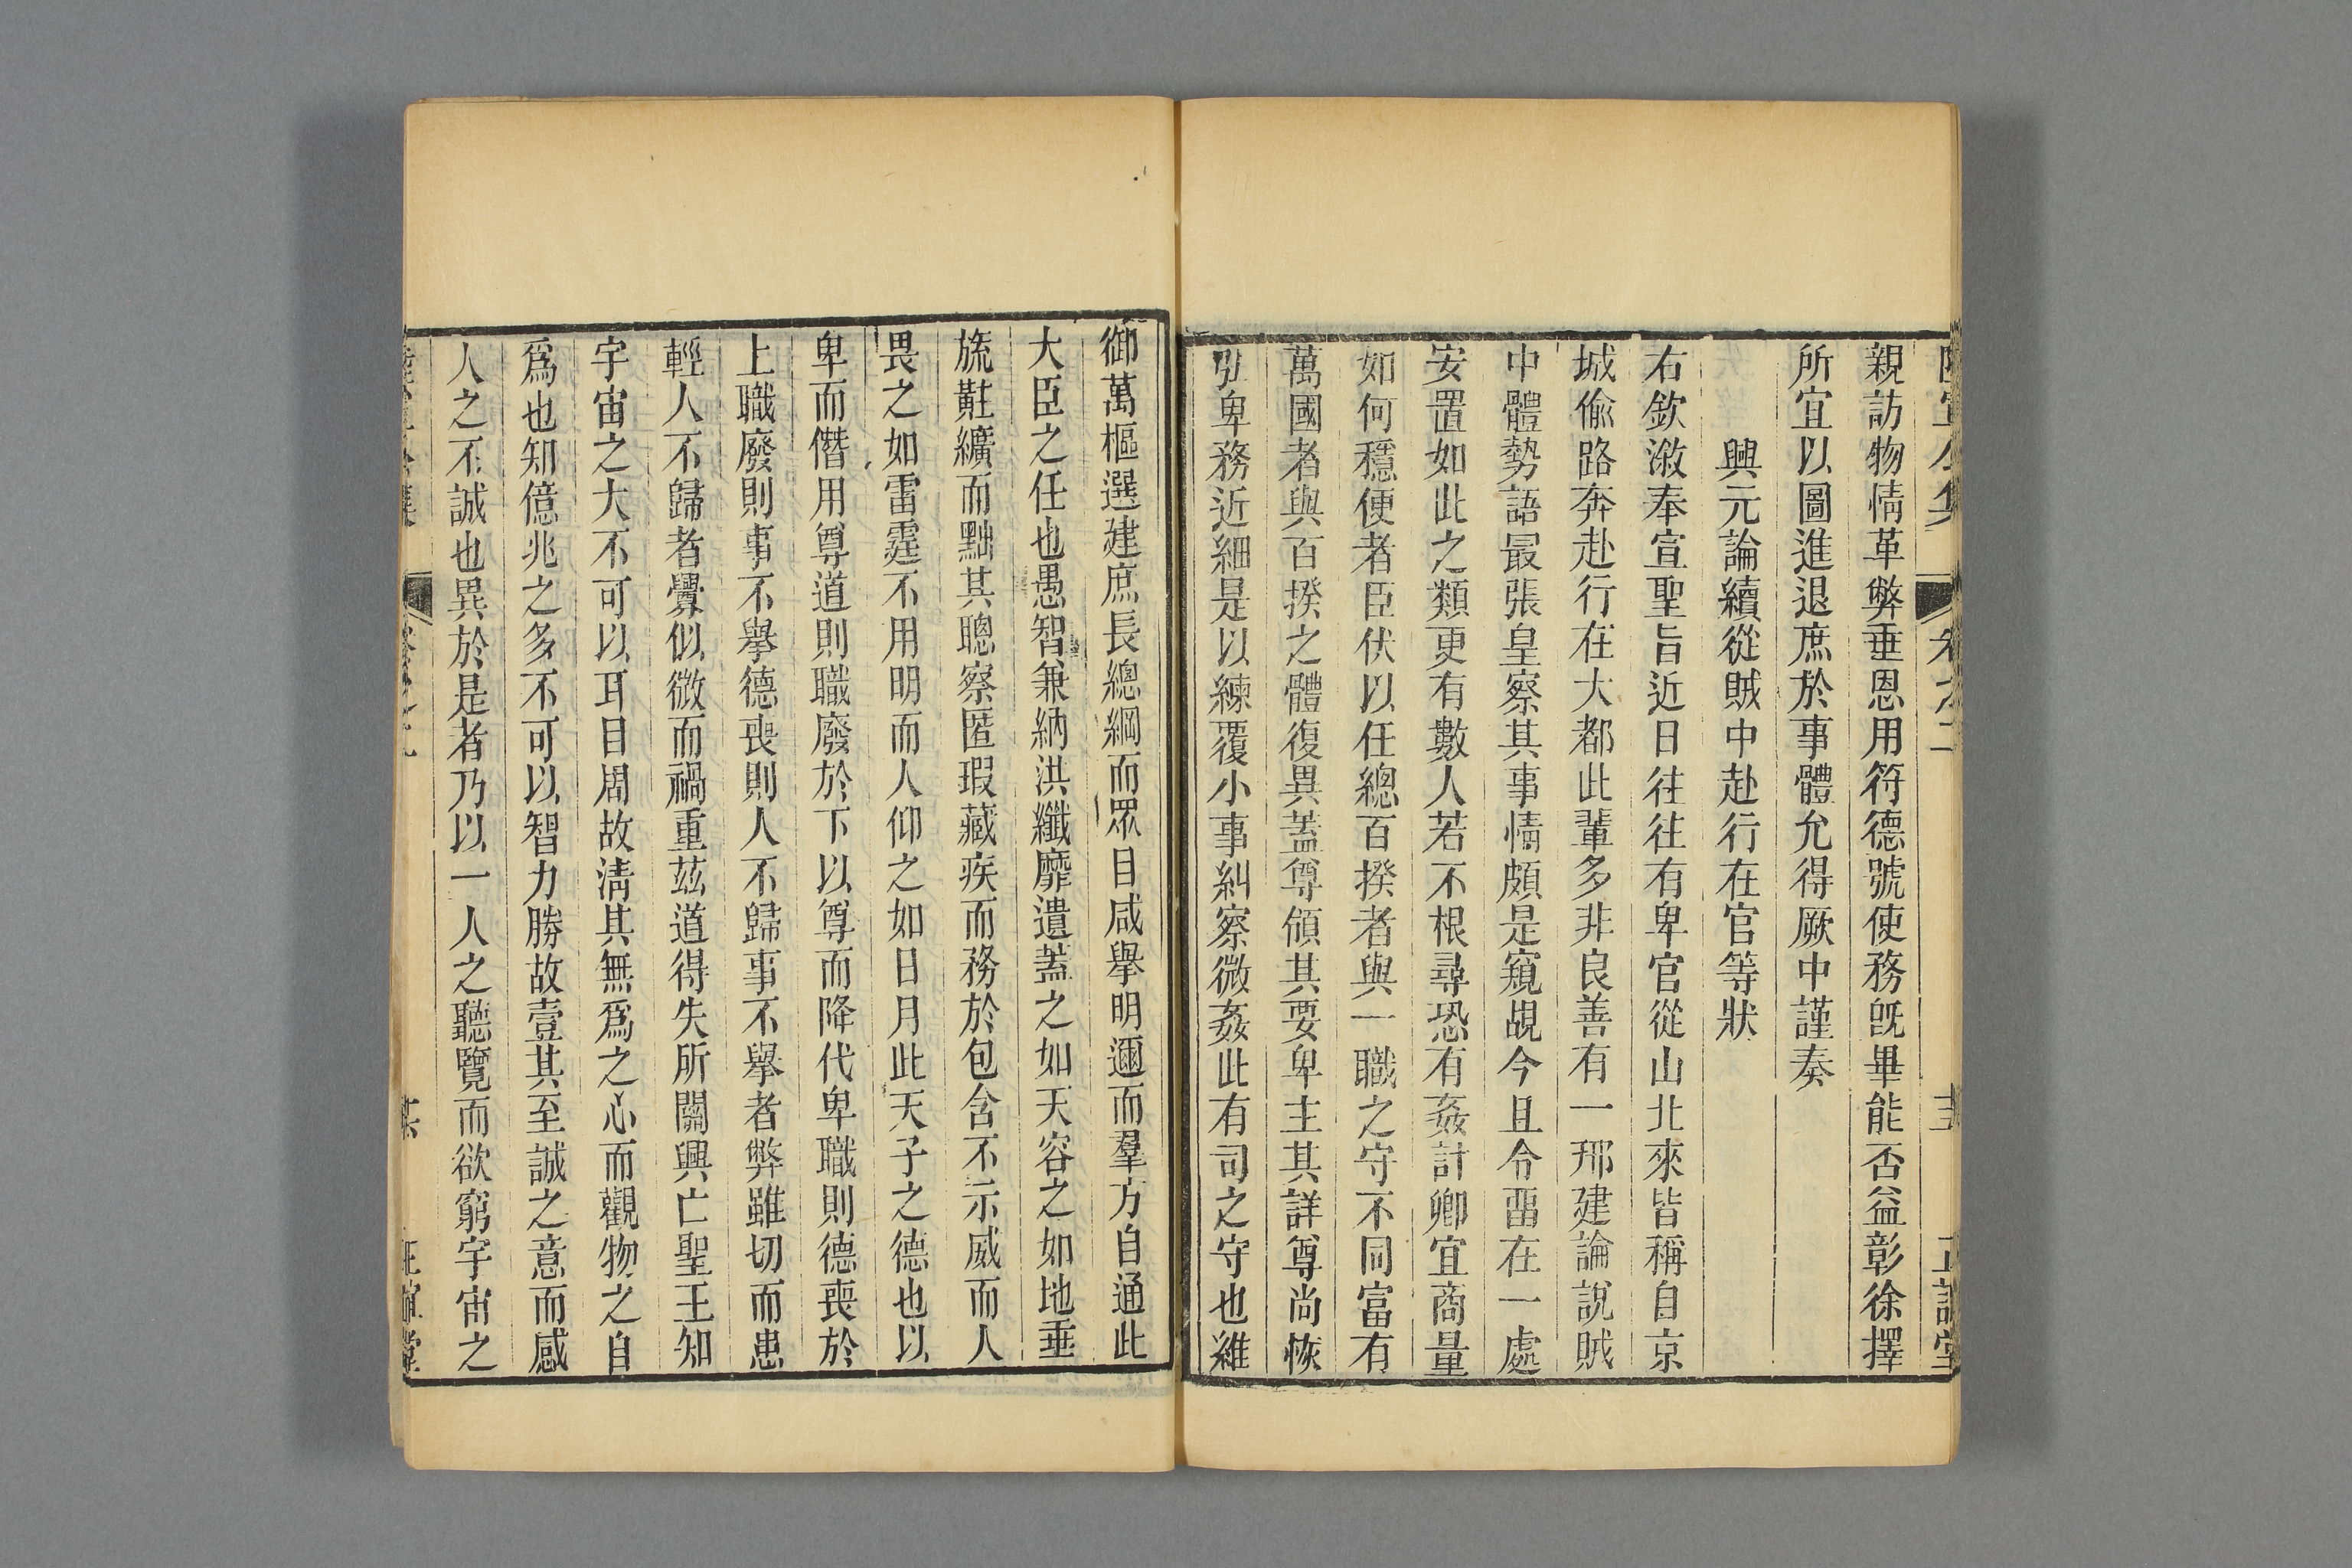 親訪物情革弊垂恩用符德號使務旣畢能否益彰徐擇
所宜以圖進退庶於事體允得厥中謹奏
興元論續從賊中赴行在官等狀
右欽漵奉宣聖旨近日往往有卑官從山北來皆稱自京
城偷路奔赴行在大都此輩多非良善有一邢建論說賊
中體勢語最張皇察其事情頗是窺覘今且令畱在一處
安置如此之類更有數人若不根尋恐有姦計卿宜商量
如何穩便者臣伏以任總百揆者與一職之守不同富有
萬國者與百揆之體復異蓋尊領其要卑主其詳尊尚恢
弘卑務近細是以練覆小事糾察微姦此有司之守也維
御萬樞選建庶長總綱而眾目咸舉明邇而羣方自通此
大臣之任也愚智兼納洪纖靡遺蓋之如天容之如地垂
旒黈纊而黜其聰察匿瑕藏疾而務於包含不示威而人
畏之如雷霆不用明而人仰之如日月此天子之德也以
卑而僭用尊道則職廢於下以尊而降代卑職則德喪於
上職廢則事不舉德喪則人不歸事不舉者弊雖切而患
輕人不歸者釁似微而禍重茲道得失所關興亡聖王知
宇宙之大不可以耳目周故淸其無爲之心而觀物之自
爲也知億兆之多不可以智力勝故壹其至誠之意而感
人之不誠也異於是者乃以一人之聽覽而欲窮宇宙之